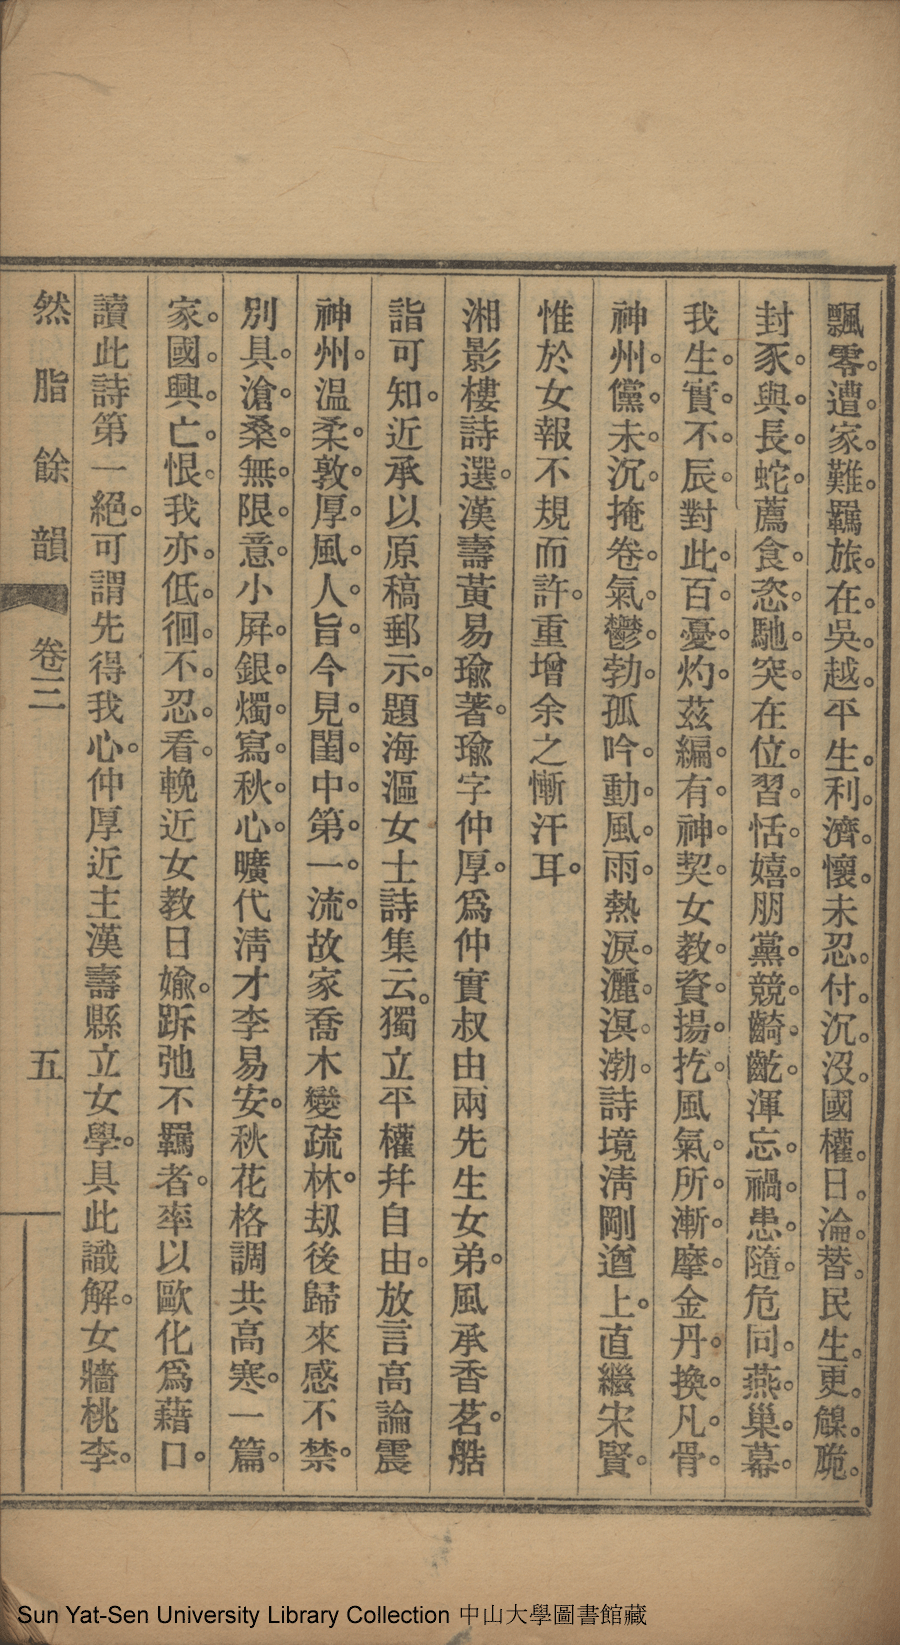 飄零遭家難羈旅在吳越平生利濟懷未忍付沉沒國權日淪替民生更臲脆
封豕與長蛇薦食恣馳突在位習恬嬉朋黨競齮齕渾忘禍患隨危同燕巢幕
我生實不辰對此百憂灼茲編有神契女教資揚扢風氣所漸摩金丹換凡骨
神州儻未沉掩卷氣鬱勃孤吟動風雨熱淚灑溟渤詩境淸剛遒上直繼宋賢
惟於女報不規而許重增余之慚汗耳
湘影樓詩選漢壽黃易瑜著瑜字仲厚爲仲實叔由兩先生女弟風承香茗艁
詣可知近承以原稿郵示題海漚女士詩集云獨立平權幷自由放言高論震
神州溫柔敦厚風人旨今見閨中第一流故家喬木變疏林刼後歸來感不禁
別具滄桑無限意小屛銀燭寫秋心曠代淸才李易安秋花格調共高寒一篇
家國興亡恨我亦低徊不忍看輓近女教日婾跅弛不羈者率以歐化爲藉口
讀此詩第一絕可謂先得我心仲厚近主漢壽縣立女學具此識解女牆桃李
然脂餘韻 卷三 五
Sun Yat-Sen University Library Collection 中山大學圖書館藏